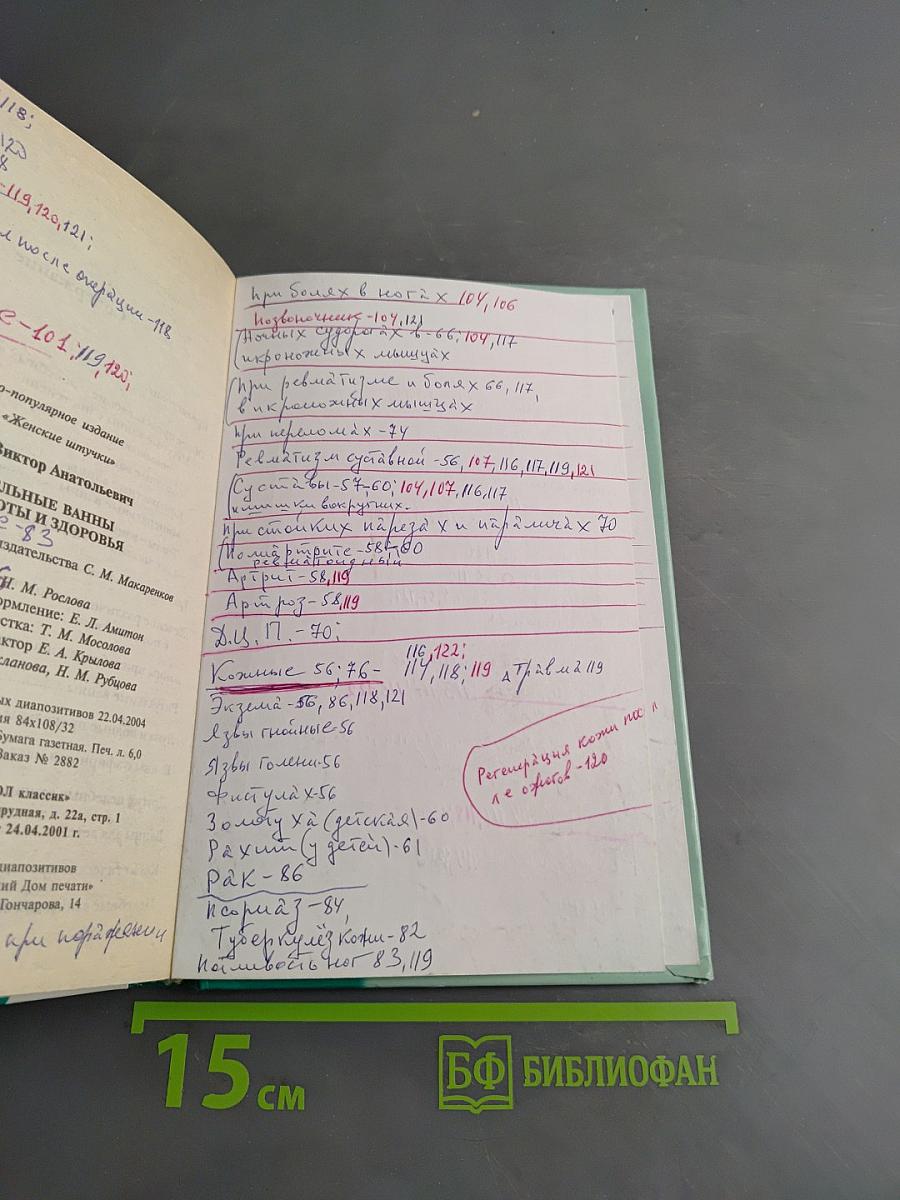 118;
120
8
-119,120,121;
после операции-118
е-101;119,120;
о-популярное издание
«Женские штучки»
Виктор Анатольевич
ЛЬНЫЕ ВАННЫ
ОТЫ И ЗДОРОВЬЯ
е-83
издательства С. М. Макаренков
Н. М. Рослова
ормление: Е. Л. Амитон
стка: Т. М. Мосолова
ктор Е. А. Крылова
сланова, Н. М. Рубцова
ых диапозитивов 22.04.2004
ия 84х108/32
Бумага газетная. Печ. л. 6,0
Заказ № 2882
ОЛ классик»
рудная, д. 22а, стр. 1
24.04.2001 г.
диапозитивов
кий Дом печати»
Гончарова, 14
при поражении
При болях в ногах 104,106
Позвоночник-104,121
Ночных судорогах в-66;104,117
икроножных мышцах
При ревматизме и болях 66,117,
в икроножных мышцах
При переломах-74
Ревматизм суставной-56,107,116,117,119,121
Суставы-57,60;104,107,116,117
и мышки вокруг них.
При стойких парезах и параличах 70
Полиартрите-58,60
ревматоидный
Артрит-58,119
Артроз-58,119
Д.Ц.П.-70;
116,122;
Кожные 56;76- 114,118;119 Травма 119
Экзема-56,86,118,121
Язвы гнойные-56
Язвы голени-56
Фистулах-56
Золотуха (детская)-60
Рахит (у детей)-61
Рак-86
Псориаз-84,
Туберкулёз кожи-82
Потливость ног 83,119
Регенерация кожи пос
ле ожогов-120
15 см
БФ БИБЛИОФАН